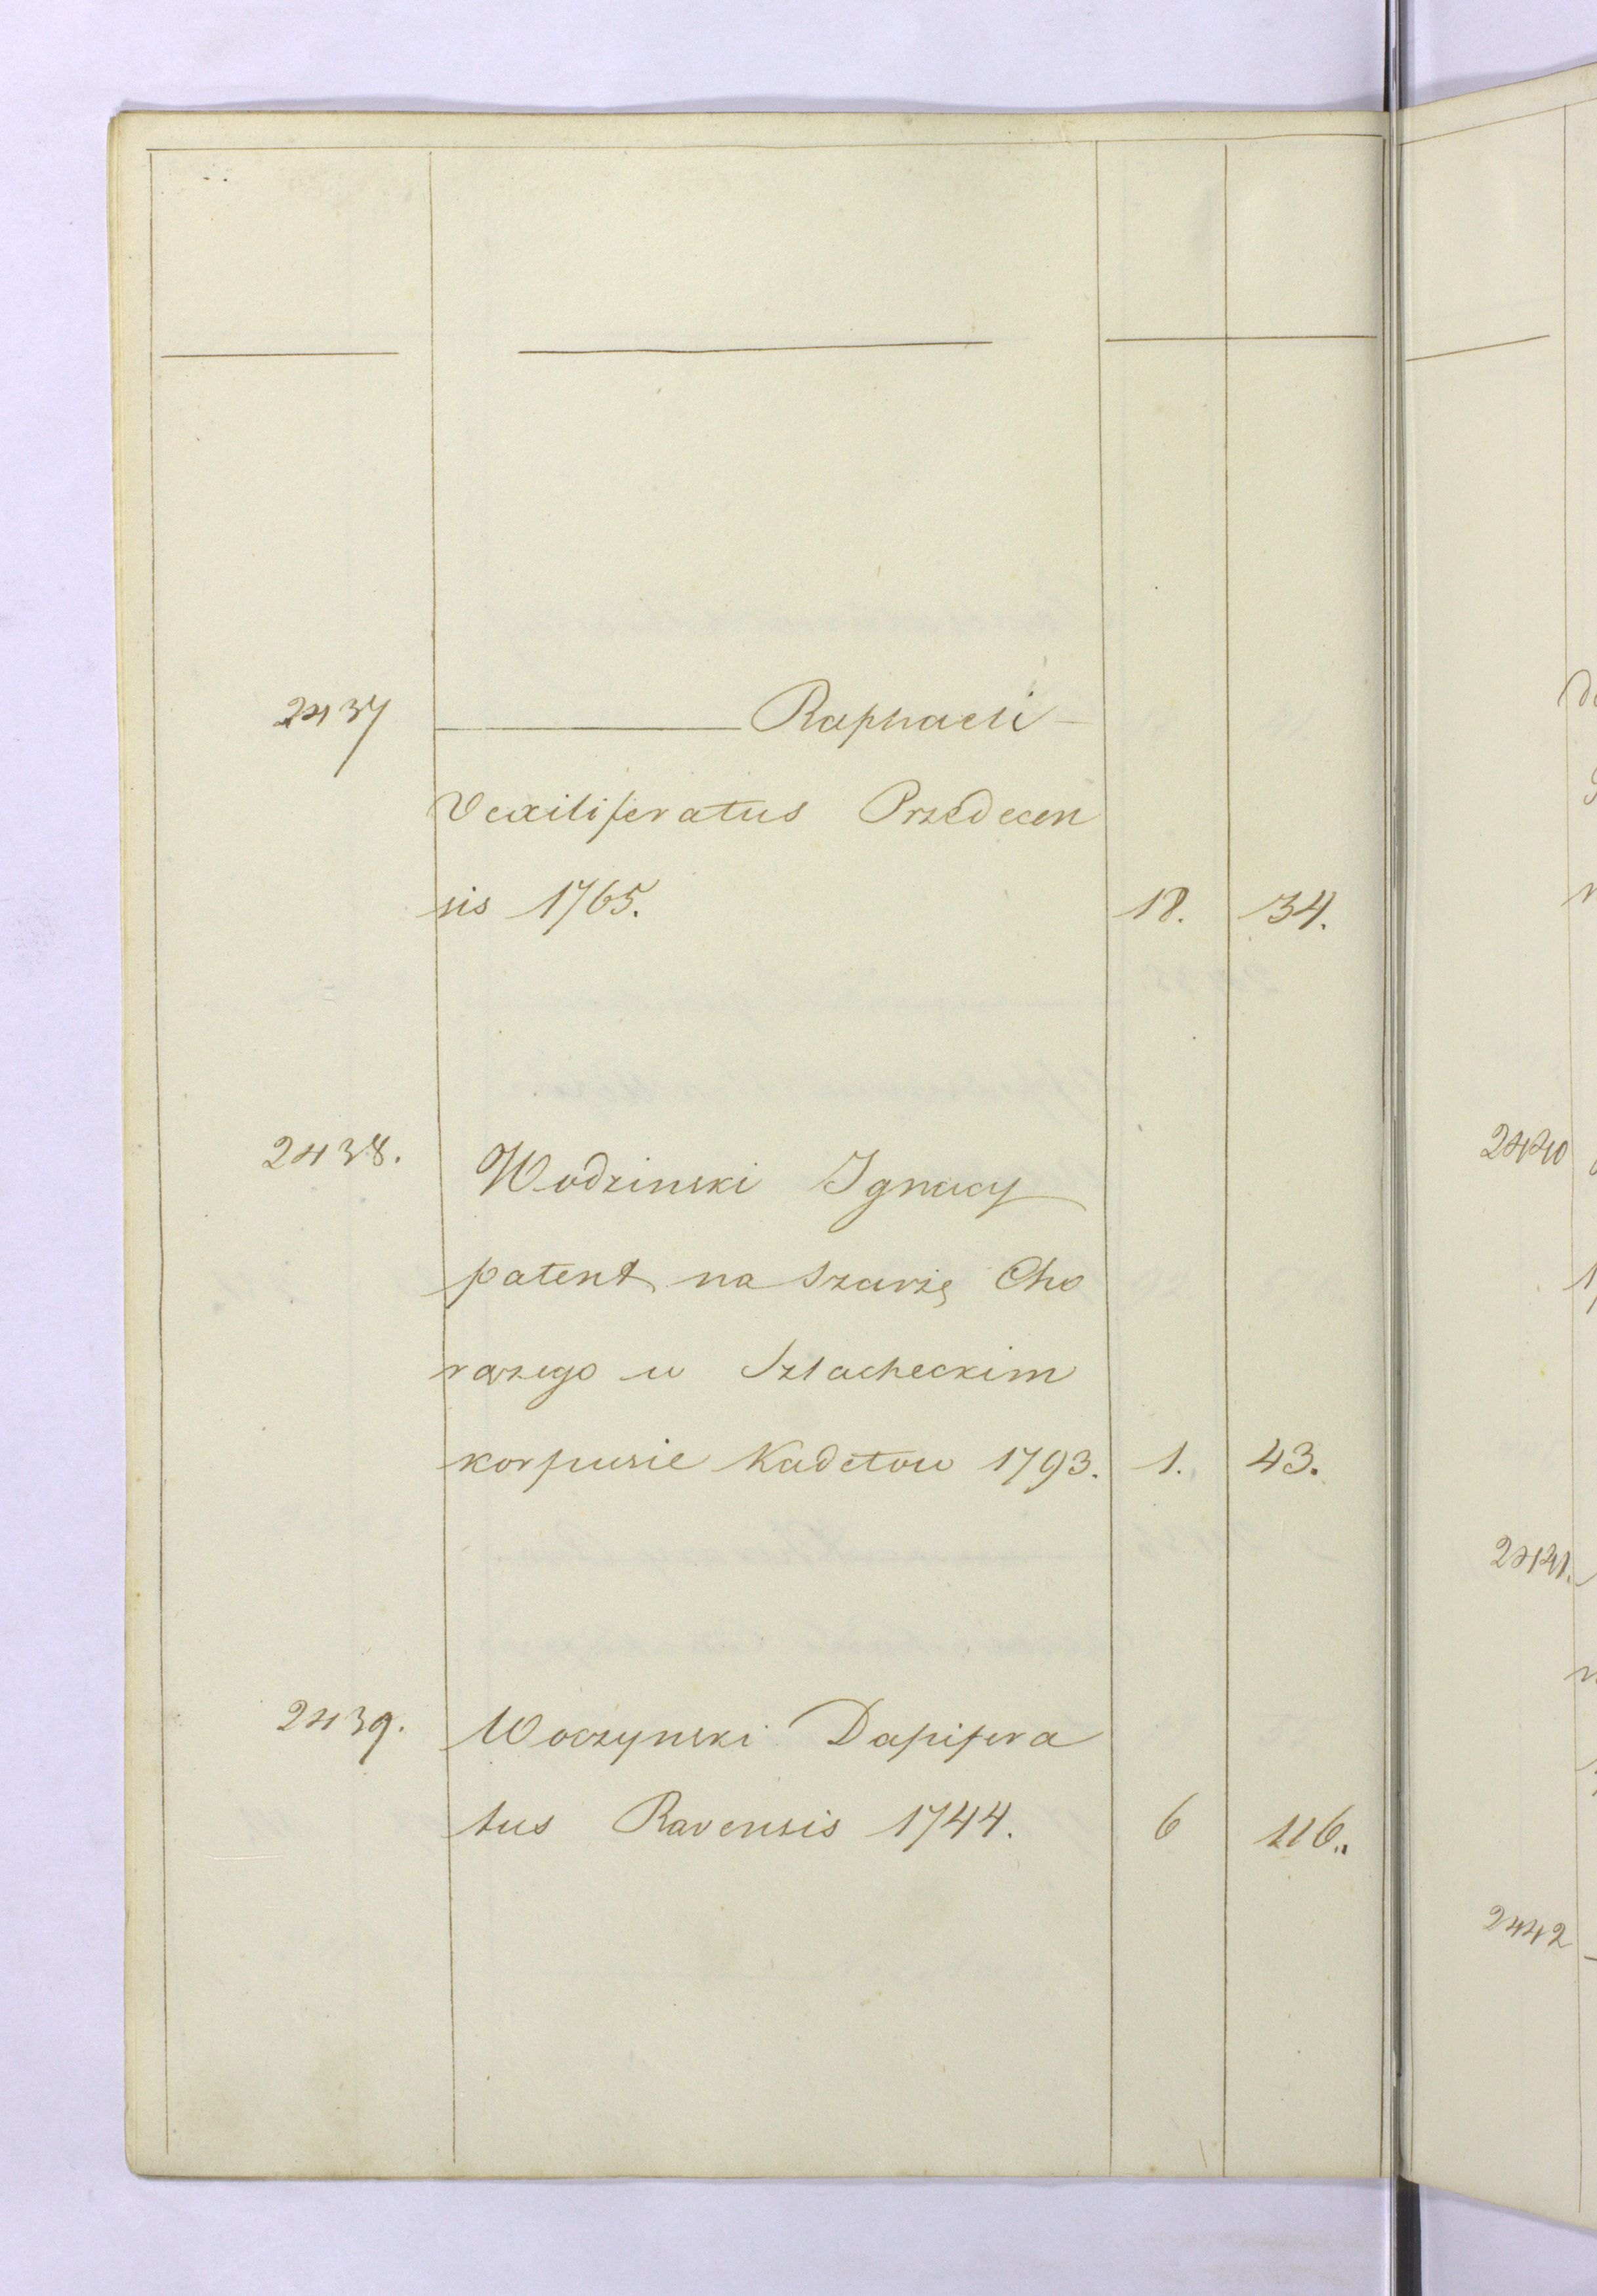 2437 Raphaeli
Vexiliferatus Przedecen
sis 1765. 18. 34.
2438. Wodzinski Ignacy
patent na szarżę Cho
rązego w Szlacheckim
korpusie Kadetow 1793. 1. 43.
2439. Woczynski Dapifera
tus Ravensis 1744. 6 116.
2440
2441.
2442